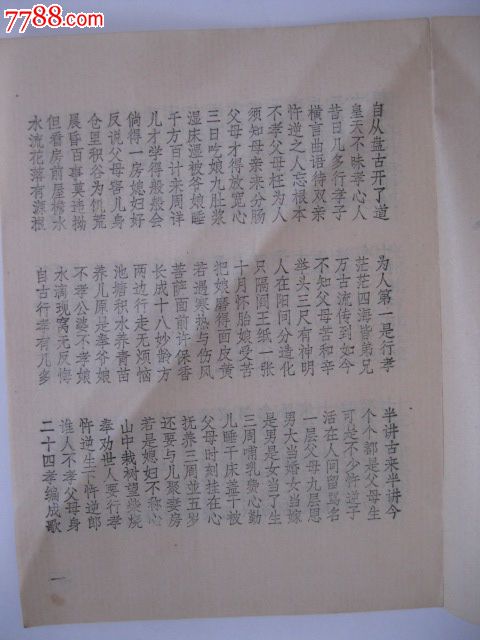 7788.com
自从盘古开了道 为人第一是行孝 半讲古来半讲今
皇天不昧孝心人 茫茫四海皆弟兄 个个都是父母生
昔日几多行孝子 万古流传到如今 可是不少忤逆子
横言曲语待双亲 不知父母苦和辛 活在人间留骂名
忤逆之人忘根本 举头三尺有神明 一层父母九层恩
不孝父母枉为人 人在阳间分造化 男大当婚女当嫁
须知母亲来分肠 只隔阎王纸一张 是男是女当了生
父母才得放宽心 十月怀胎娘受苦 三周哺乳费心勤
三日吃娘九肚浆 把娘磨得面皮黄 儿睡干床盖干被
湿床遇被爷娘睡 若遇寒热与伤风 父母时刻挂在心
千方百计来周详 菩萨面前许保香 抚养三周並五岁
儿才学得般般会 长成十八妙龄方 还要与儿聚妻房
倘得一房媳妇好 两边行走无烦恼 若是媳妇不称心
反说父母窘儿身 池塘积水养青苗 山中栽树望些烧
仓里积谷为饥荒 养儿原是奉爷娘 奉劝世人要行孝
晨昏百事莫违拗 不孝公婆不孝娘 忤逆生下忤逆郎
但看房前屋檐水 水滴现窝无反悔 谁人不孝父母身
水流花落有源根 自古行孝有几多 二十四孝编成歌
一